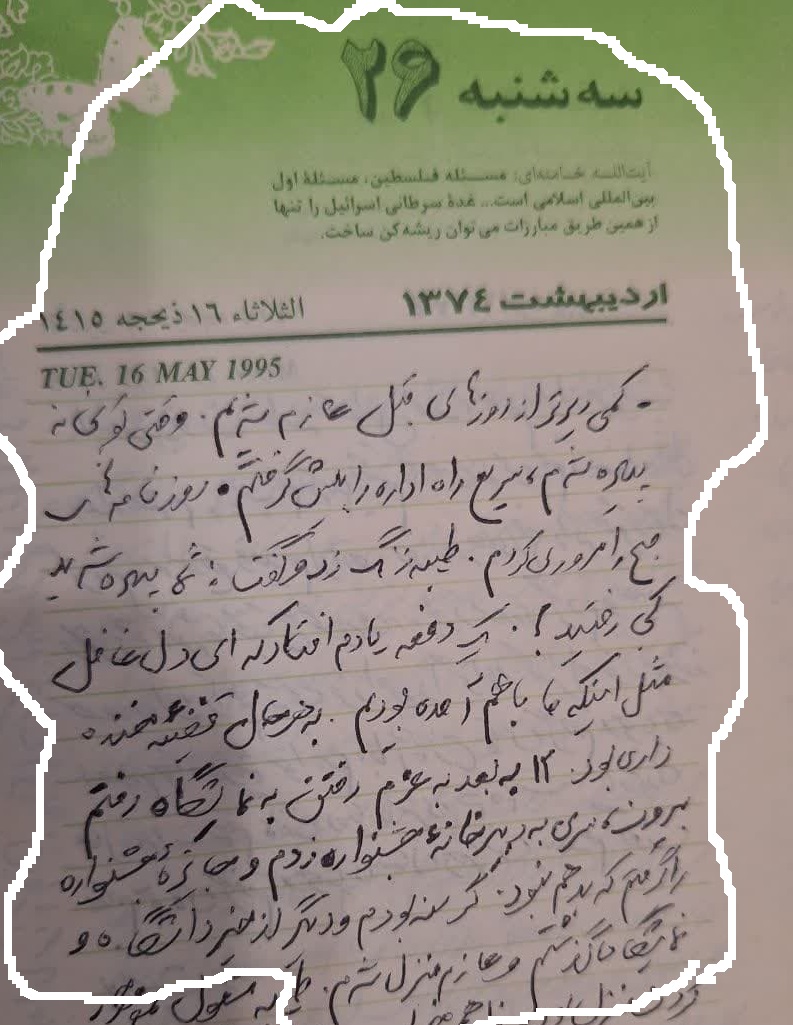 سه شنبه ۲۶
آیت‌الله خامنه‌ای: مسئله فلسطین، مسئلهٔ اول
بین‌المللی اسلامی است... غدهٔ سرطانی اسرائیل را تنها
از همین طریق مبارزات می توان ریشه‌کن ساخت.
اردیبهشت ۱۳۷٤
الثلاثاء ١٦ ذیحجه ١٤١٥
TUE. 16 MAY 1995
- کمی دیرتر از روزهای قبل عازم شدم. وقتی توپخانه
پیاده شدم، سریع راه اداره را پیش گرفتم. روزنامه‌های
صبح را مروری کردم. طیبه زنگ زد و گفت: شما پیاده شدید
کی رفتید؟. یک دفعه یادم افتاد که ای دل غافل
مثل اینکه ما باهم آمده بودیم. بهرحال قضیهٔ خنده
داری بود. ۱۲ به بعد به عزم رفتن به نمایشگاه رفتم
بیرون، سری به دبیرخانهٔ جشنواره زدم و جایزهٔ جشنواره
را گرفتم که بد هم نبود. گرسنه بودم و دیگر از خیر دانشگاه و
نمایشگاه گذشتم و عازم منزل شدم. طیبه مشغول